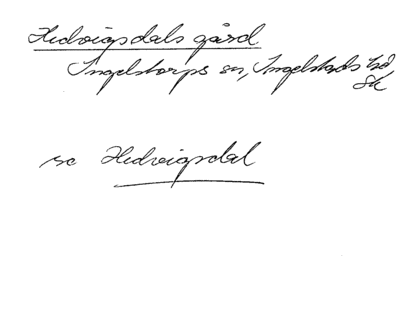 Hedvigsdals gård.
Ingelstorps sn, Ingelstads hd
Sk
se Hedvigsdal